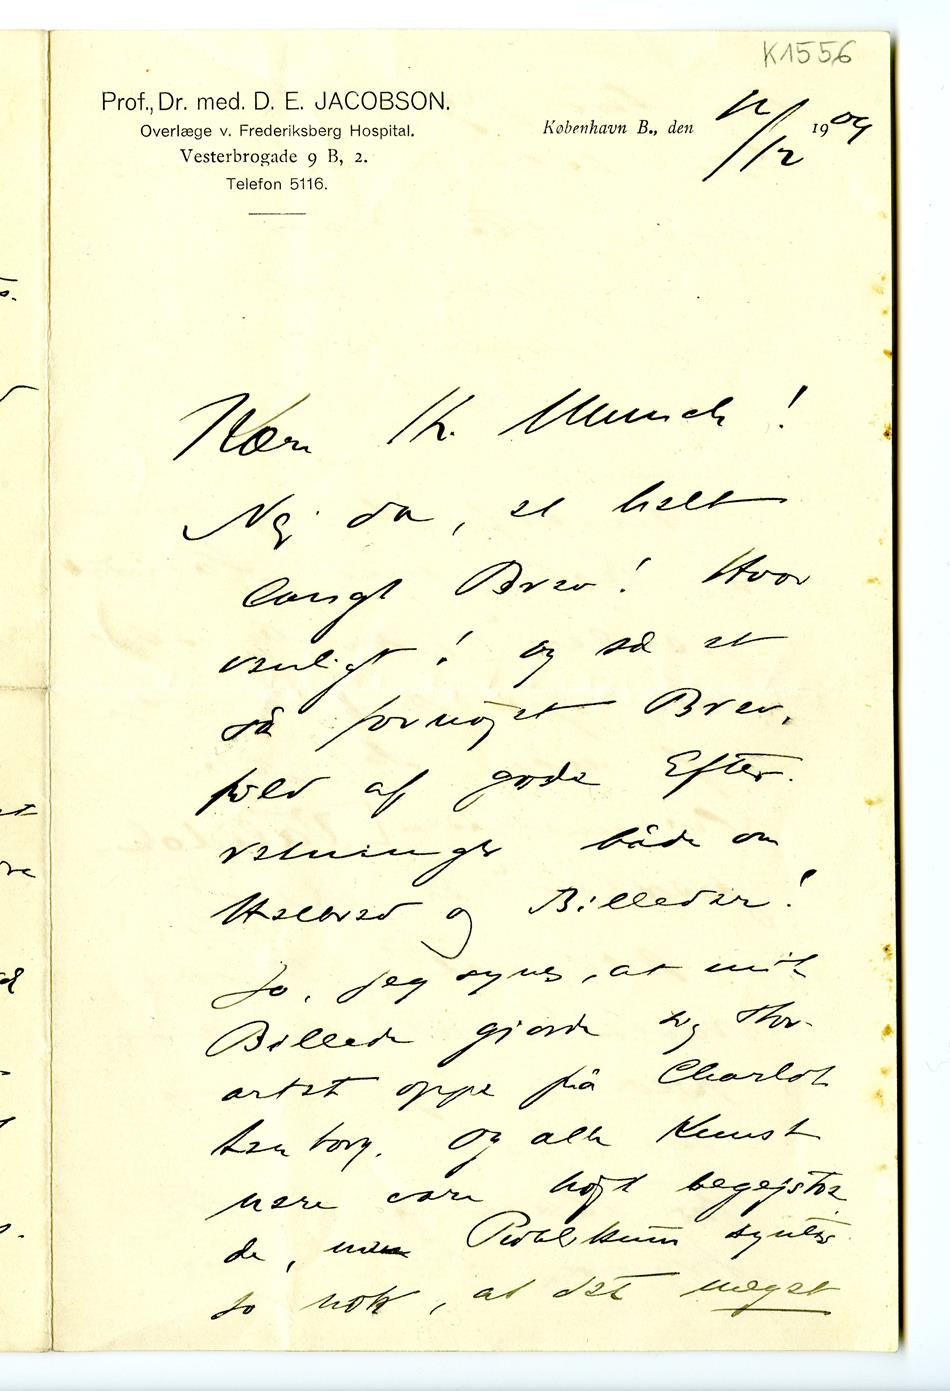 K1556
Prof., Dr. med. D. E. JACOBSON.
Overlæge v. Frederiksberg Hospital.
Vesterbrogade 9 B, 2.
Telefon 5116.
København B., den 12/12 1909
Kære Hr. Munch!
Nej da, et helt
langt Brev! Hvor
venligt! og så et
så fornøjet Brev,
fuld af gode Efter-
retninger både om
Helbred og Billeder!
Jo, jeg synes, at mit
Billede gjorde sig stor-
artet oppe på Charlot
tenborg. Og alle Kunst
nere vare højt begejstre
de, men Publikum syntes
jo nok, at det meget